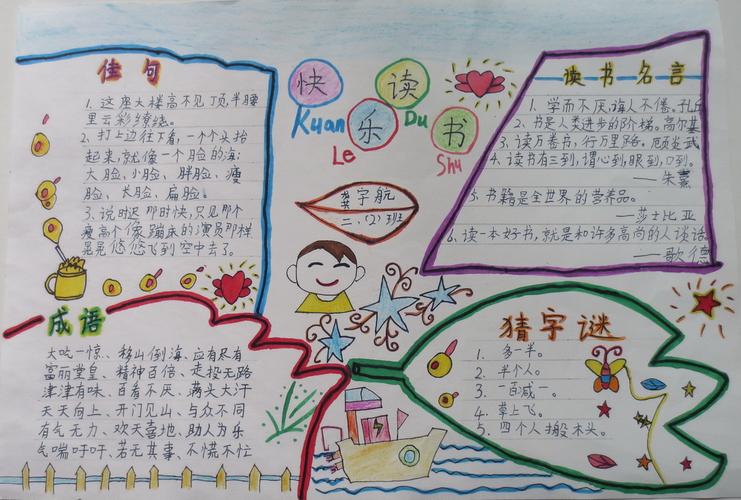 佳句
1. 这座大楼高不见顶,半腰
里云彩缭绕。
2. 打上边往下看,一个个头抬
起来,就像一个脸的海:
大脸、小脸、胖脸、瘦
脸、长脸、扁脸。
3. 说时迟那时快,只见那个
瘦高个像蹦床的演员那样
晃晃悠悠飞到空中去了。
快
乐
读
书
Kuan
Le
Du
Shu
龚宇航
二、(2)班
读书名言
1. 学而不厌,诲人不倦。孔丘
2. 书是人类进步的阶梯。高尔基
3. 读万卷书,行万里路。顾炎武
4. 读书有三到,谓心到,眼到,口到。
——朱熹
5. 书籍是全世界的营养品。
——莎士比亚
6. 读一本好书,就是和许多高尚的人谈话。
——歌德
成语
大吃一惊、移山倒海、应有尽有
富丽堂皇、精神百倍、走投无路
津津有味、百看不厌、满头大汗
天天向上、开门见山、与众不同
有气无力、欢天喜地、助人为乐
气喘吁吁、若无其事、不慌不忙
猜字谜
1. 多一半。
2. 半个人。
3. 一百减一。
4. 草上飞。
5. 四个人搬木头。